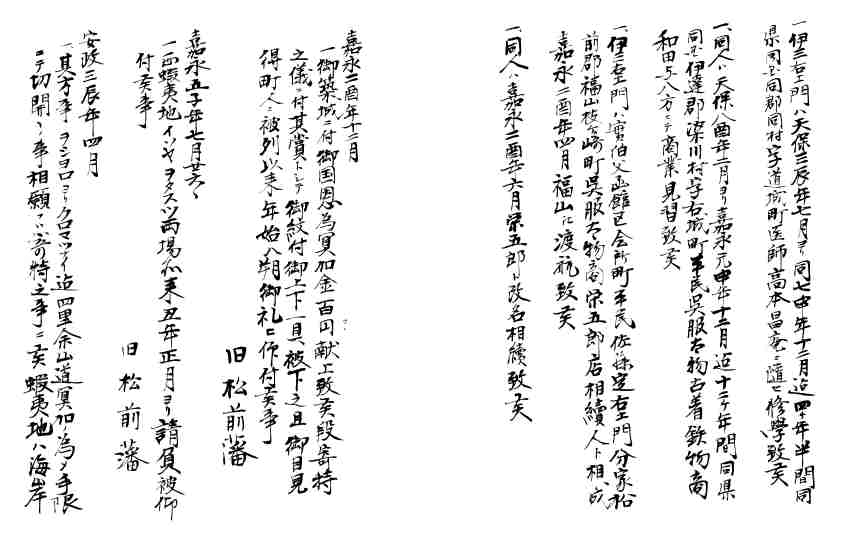 一伊三右エ門ハ天保三辰年七月ヨリ同七申年十二月迄四ヶ年半間同
県同国同郡同村字道城町医師高本昌庵ニ随ヒ修学致ス
一、同人ハ天保八酉年二月ヨリ嘉永元申年十二月迄十二ヶ年間同県
同国伊達郡梁川村字右城町平民呉服太物古着鉄物商
和田与八方ニテ商業見習致ス
一、伊三右エ門ハ実伯父函館区会所町平民佐藤定右エ門分家松
前郡福山枝ヶ崎町呉服太物商栄五郎店相続人ト相成
嘉永二酉年四月福山ニ渡航致ス
一、同人ハ嘉永二酉年六月栄五郎ト改名相続致ス
嘉永二酉年十二月
一御築城ニ付御国恩為冥加金百円献上致ス段寄特
之儀ニ付其賞トシテ御紋付御上下一具被下之且御目見
得町人ニ被列以来年始八朔御礼ニ仰付ス事
旧松前藩
嘉永五子年七月廿六日
一西蝦夷地イソヤヲタスツ両場所来丑年正月ヨリ請負被仰
付ス事
旧松前藩
安政三辰年四月
一、其方事ヲシヨロヨリクロマツナイ迄四里余山道冥加ノ為メ手限
ニテ切開ノ事相願ヒ寄特之事ニス蝦夷地ハ海岸